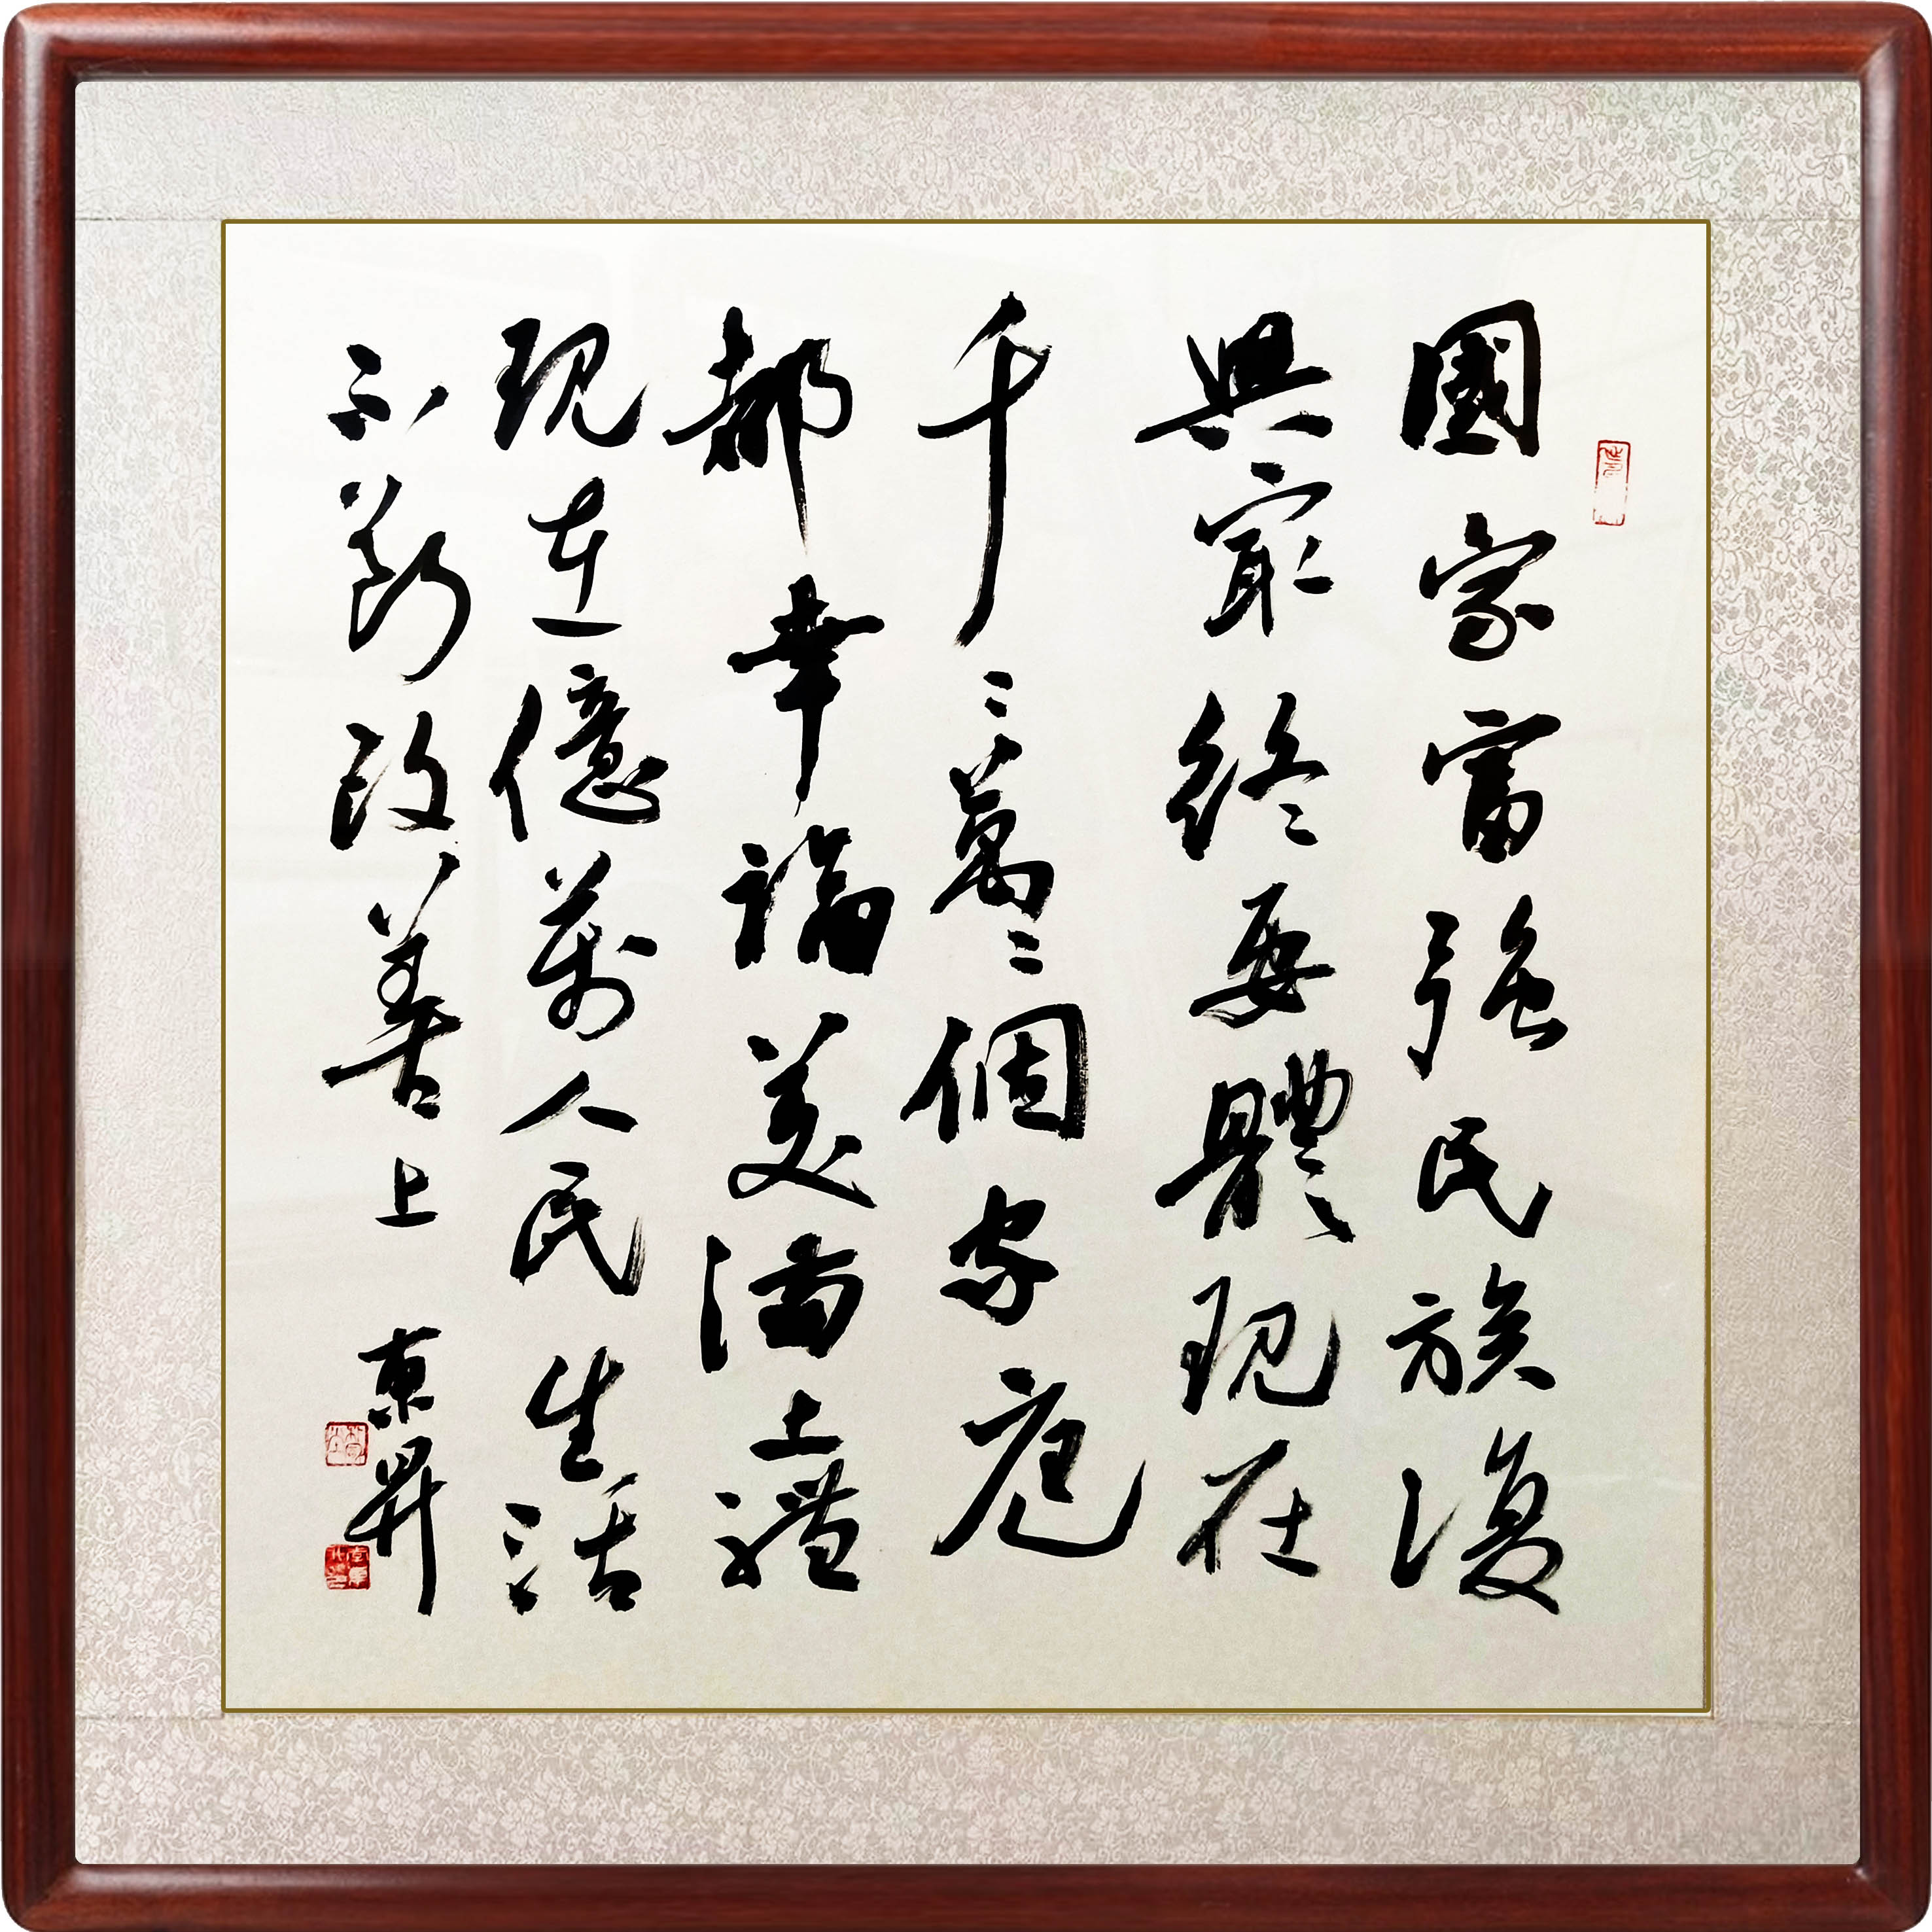 國家富強民族復
興最終要體現在
千千萬萬個家庭
都幸福美滿上體
現在億萬人民生活
不斷改善上 東昇